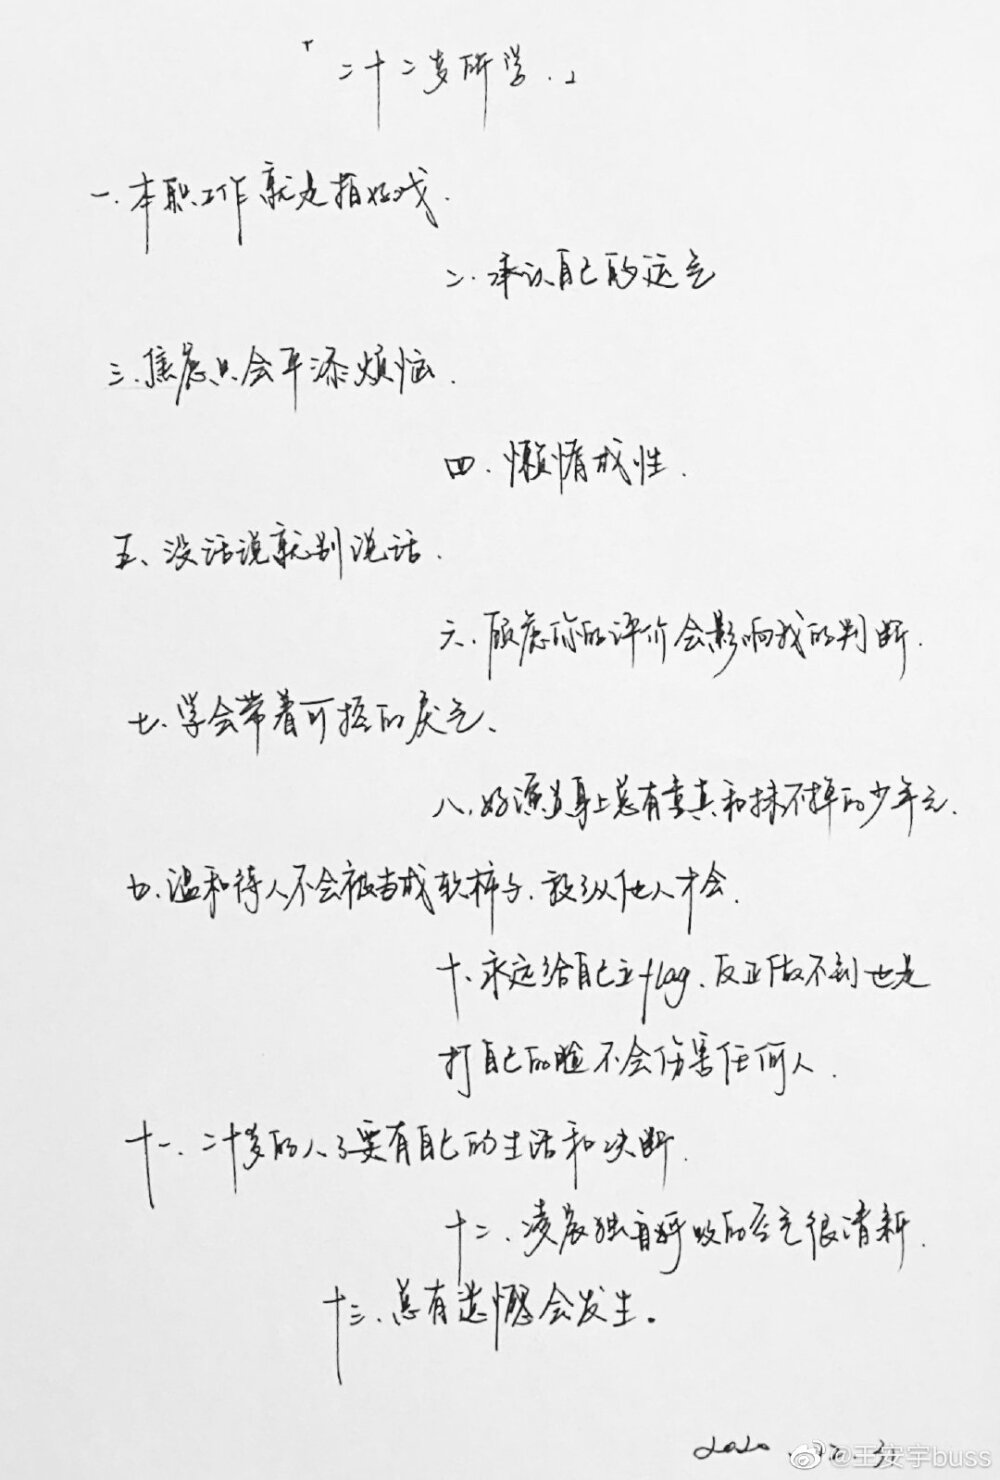 「二十二岁所学.」
一.本职工作就是拍好戏.
二.承认自己的运气
三.焦虑只会平添烦恼.
四.懒惰成性.
五、没话说就别说话.
六.顾虑你的评价会影响我的判断.
七.学会带着可控的戾气、
八.好演员身上总有童真和抹不掉的少年气.
九.温和待人不会被当成软柿子.放纵他人才会.
十.永远给自己立flag.反正做不到也是
打自己的脸不会伤害任何人.
十一.二十岁的人了要有自己的生活和决断.
十二.凌晨独自呼吸的空气很清新.
十三.总有遗憾会发生。
2020.12.31
@王安宇buss